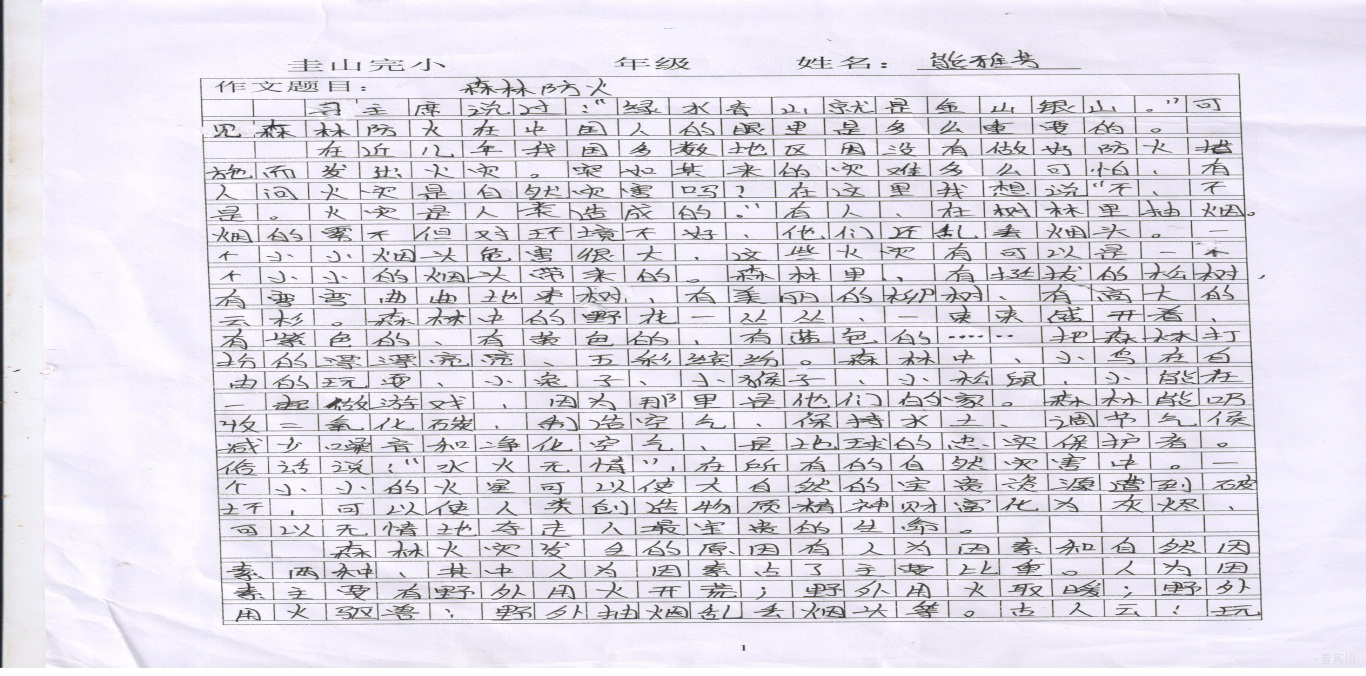 圭山完小 年级 姓名：
作文题目： 森林防火
习主席说过：“绿水青山就是金山银山。”可
见森林防火在中国人的眼里是多么重要的。
在近几年我国多数地区因没有做好防火措
施而发出火灾。突如其来的灾难多么可怕，有
人问火灾是自然灾害吗？在这里我想说“不、不
是。火灾是人类造成的。”有人、在树林里抽烟。
烟的雾不但对环境不好、他们还乱丢烟头。一
个小小烟头危害很大，这些火灾有可以是一个
个小小的烟头带来的。森林里，有挺拔的松树，
有弯弯曲曲地枣树、有美丽的柳树、有高大的
云杉。森林中的野花一丛丛、一束束盛开着，
有紫色的、有黄色的、有蓝色的……把森林打
扮的漂漂亮亮、五彩缤纷。森林中、小鸟在自
由的玩耍、小兔子、小猴子、小松鼠、小熊在
一起做游戏，因为那里是他们的家。森林能吸
收二氧化碳，制造空气、保持水土、调节气候
减少噪音和净化空气、是地球的忠实保护者。
俗话说：“水火无情”，在所有的自然灾害中。一
个小小的火星可以使大自然的宝贵资源遭到破
坏，可以使人类创造物质精神财富化为灰烬、
可以无情地夺走人最宝贵的生命。
森林火灾发生的原因有人为因素和自然因
素两种、其中人为因素占了主要比重。人为因
素主要有野外用火开荒；野外用火取暖；野外
用火驱兽；野外抽烟乱丢烟头等。古人云：玩
1